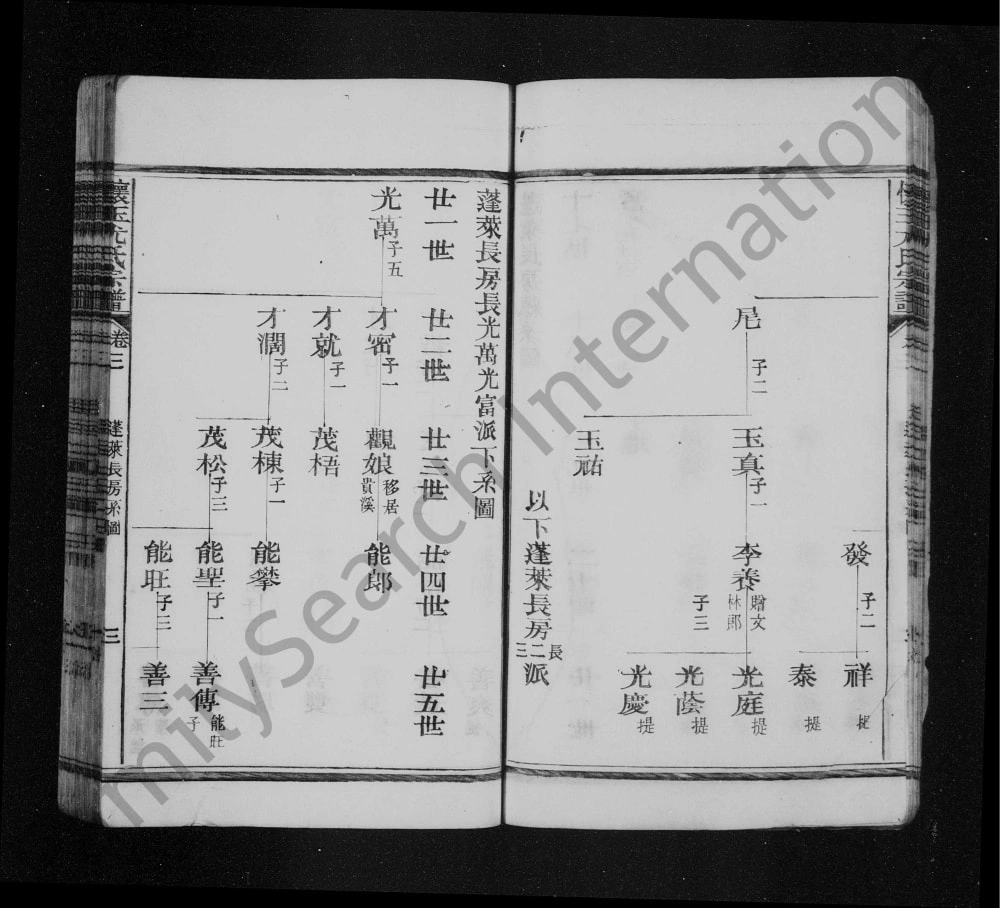 發
子二
祥
提
泰
提
尼
子二
玉真
子一
李養
贈文
林郎
子三
光庭
提
光蔭
提
光慶
提
玉祐
以下蓬萊長房長二三派
蓬萊長房長光萬光富派下系圖
廿一世 廿二世 廿三世 廿四世 廿五世
光萬
子五
才密
子一
觀娘
移居
貴溪
能郎
才就
子一
茂梧
才潤
子二
茂棟
子一
能攀
茂松
子三
能聖
子一
善傳
能旺
子
能旺
子三
善三
懷玉尤氏宗譜
卷三
蓬萊長房系圖
三
milySearch Internation